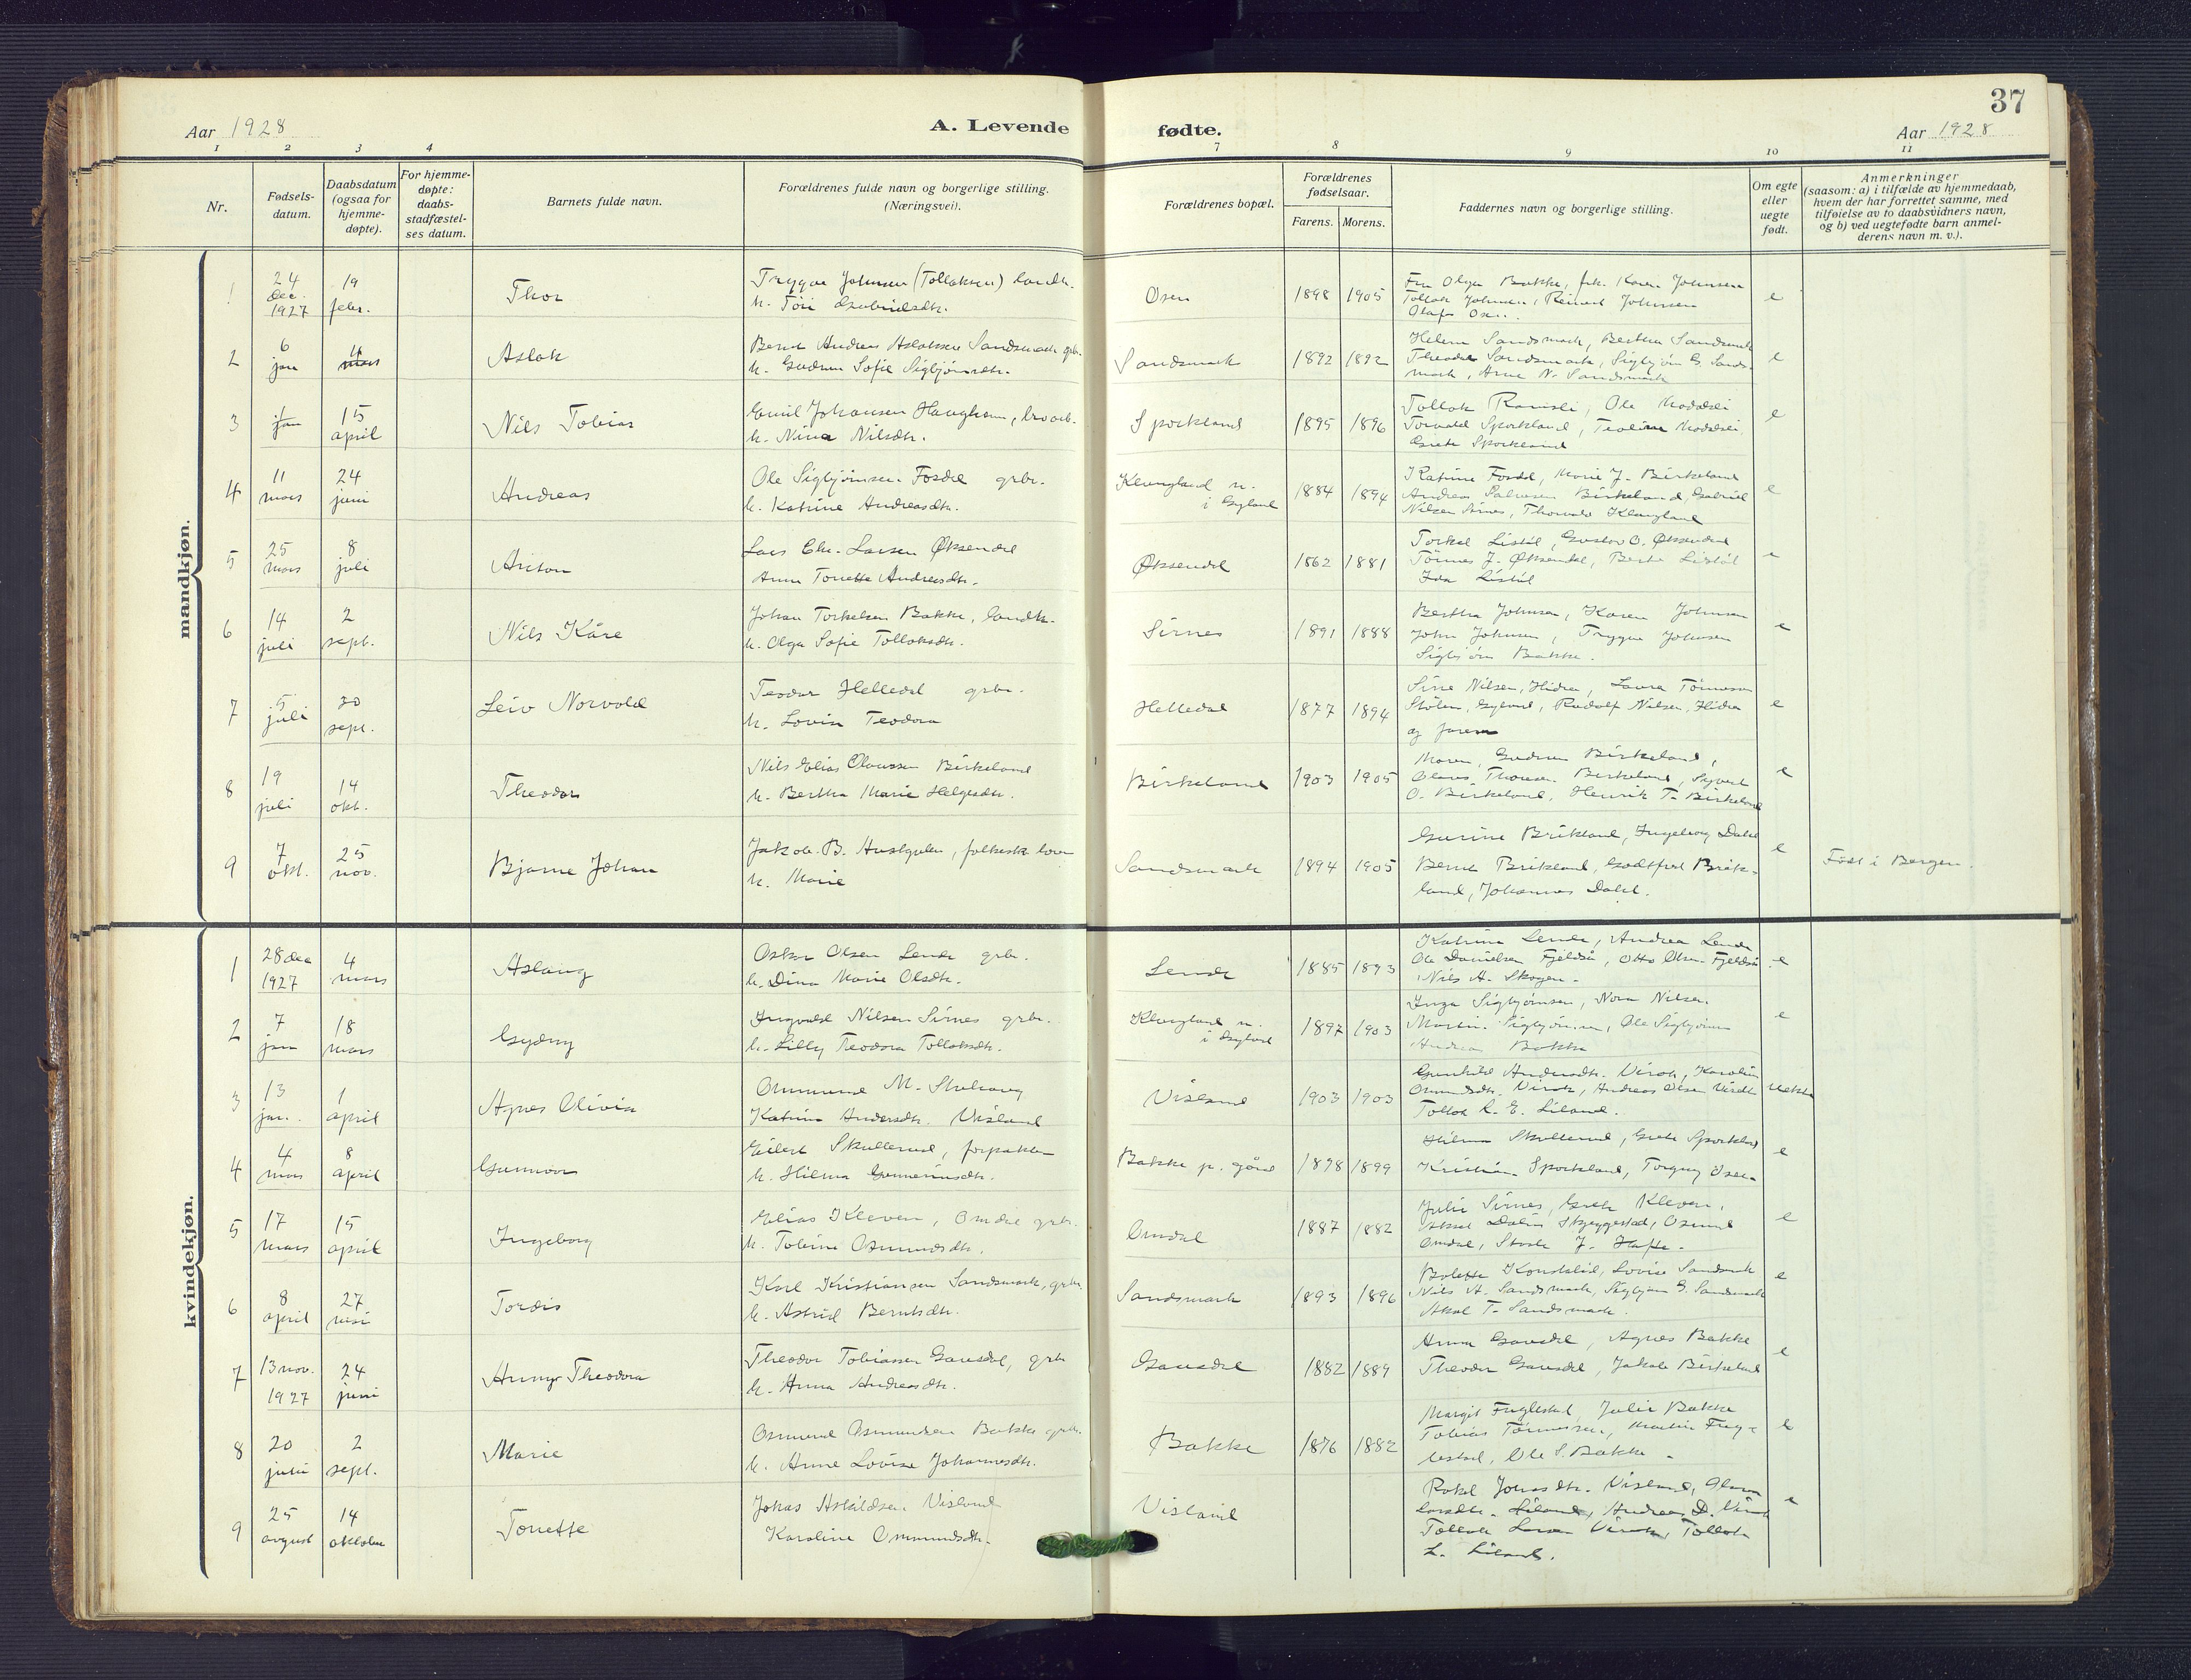 37
Aar 1928
A. Levende fødte.
Aar 1928
1 2 3 4 7 8 9 10 11
Nr.
Fødsels-
datum.
Daabsdatum
(ogsaa for
hjemme-
døpte).
For hjemme-
døpte:
daabs-
stadfæstel-
ses datum.
Barnets fulde navn.
Forældrenes fulde navn og borgerlige stilling.
(Næringsvei).
Forældrenes bopæl.
Forældrenes
fødselsaar.
Farens. Morens.
Faddernes navn og borgerlige stilling.
Om egte
eller
uegte
født.
Anmerkninger
(saasom: a) i tilfælde av hjemmedaab,
hvem der har forrettet samme, med
tilføielse av to daabsvidners navn,
og b) ved uegtefødte barn anmel-
derens navn m. v.).
mandkjøn.
1 24 dec. 1927 19 febr. Thor
Trygve Johnsen (Tollaksen) landh.
h. Töri Gabrielsdtr.
Osen 1898 1905
Fru Olga Bakke, frk. Karen Johnsen
Tollak Johnsen, Reinert Johnsen
Olaf Osen. e
2 6 jan 4 mars Aslak
Bernt Andreas Aslaksen Sandsmark grbr.
h. Gudrun Sofie Sigbjörnsdtr.
Sandsmark 1892 1892
Helene Sandsmark, Bertha Sandsmark
Theodor Sandsmark, Sigbjörn G. Sands-
mark, Arne N. Sandsmark e
3 1 jan 15 april Nils Tobias
Emil Johansen Haughom,
h. Nina Nilsdtr.
Sporkland 1895 1896
Tollak Ramsli, Ole
Torvald Sporkland, Teoline
Grete Sporkland e
4 11 mars 24 juni Andreas
Ole Sigbjörnsen Fosdal grbr.
h. Katrine Andreasdtr.
Klungland n.
i Gyland 1884 1894
Katrine Fosdal, Marie J. Birkeland
Andreas Salvesen Birkeland, Gabriel
Nilsen Sirnes, Thorvald Klungland e
5 25 mars 8 juli Anton
Lars Chr. Larsen Øksendal
Anne Tonette Andreasdtr.
Øksendal 1862 1881
Torkel Listöl, Gustav O. Øksendal
Tönnes J. Øksendal, Berte Listöl
Ida Listöl e
6 14 juli 2 sept. Nils Kåre
Johan Torkelsen Bakke, landh.
h. Olga Sofie Tollaksdtr.
Sirnes 1891 1888
Bertha Johnsen, Karen Johnsen
John Johnsen, Trygve Johnsen
Sigbjörn Bakke. e
7 5 juli 30 sept. Leiv Norvald
Teodor Helledal grbr.
h. Lovise Teodora
Helledal 1877 1894
Sine Nilsen, Hidra, Laura Tönnessen
Stölen, Gyland, Rudolf Nilsen, Hidra
og faren e
8 19 juli 14 okt. Theodor
Nils Elias Olaussen Birkeland
h. Bertha Marie Helgesdtr.
Birkeland 1903 1905
Maren, Gudrun Birkeland,
Olaus Thorsen Birkeland, Syvert
O. Birkeland, Henrik T. Birkeland e
9 7 okt. 25 nov. Bjarne Johan
Jakob B. , folkesk. lærer
h. Marie
Sandsmark 1894 1905
Gurine Brikland, Ingeborg Dalel
Bernt Brikland, Godtfred Brik-
land, Johannes Dalel. e
Født i Bergen.
kvindekjøn.
1 28 dec 1927 4 mars Aslaug
Oskar Olsen Lende grbr.
h. Dina Marie Olsdtr.
Lende 1885 1893
Katrine Lende, Andrea Lende
Ole Danielsen Fjeldså, Otto Olsen Fjeldså
Nils A. Skogen. e
2 7 jan 18 mars Gydny
Ingvald Nilsen Sirnes grbr.
h. Lilly Teodora Tollaksdtr.
Klungland n.
i Gyland 1897 1903
Inga Sigbjörnsen, Nora Nilsen.
Martin Sigbjörnsen, Ole Sigbjörnsen
Andreas Bakke e
3 13 jan. 1 april Agnes Olivia
Ommund M.
Katrine Andersdtr. Visland
Visland 1903 1903
Gunhild Andersdtr. Virak, Karoline
Ommundsdtr. Virak, Andreas Olsen Virak
Tollak L. E. Liland. uekte
4 4 mars 8 april Gunnvor
Eilert Skullerud, forpakter
h. Hilma Gunneriusdtr.
Bakke p. gård 1898 1899
Hilma Skullerud, Grete Sporkland
Kristian Sporkland, Torgny Osen e
5 17 mars 15 april Ingeborg
Elias Kleven, Omdal grbr.
h. Tobine Osmundsdtr.
Omdal 1887 1882
Julie Sirnes, Grete Kleven,
Dalen Skjeggestad, Osmund
Omdal, J. e
6 8 april 27 mai Tordis
Karl Kristiansen Sandsmark, grbr.
h. Astrid Berntsdtr.
Sandsmark 1893 1896
Bolette Konstali, Lovise Sandsmark
Nils A. Sandsmark, Sigbjörn G. Sandsmark
Aksel T. Sandsmark. e
7 13 nov. 1927 24 juni Anny Theodora
Theodor Tobiassen Gausdal, grbr
h. Anna Andreasdtr.
Gausdal 1882 1889
Anna Gausdal, Agnes Bakke
Theodor Gausdal, Jakob Birkeland e
8 20 juni 2 sept. Marie
Osmund Osmundsen Bakke grbr.
h. Anne Lovise Johannesdtr.
Bakke 1876 1882
Margit Fuglestad, Julie Bakke
Tobias Tönnessen, Martin Fug-
lestad, Ole S. Bakke. e
9 25 avgust 14 oktober Tonette
Jonas Askildsen Visland
Karoline Ommundsdtr.
Visland
Rakel Jonasdtr. Visland,
Larsdtr. Liland, Andreas D. Virak
Tollak Larsen Virak, Tollak
L. Liland. e